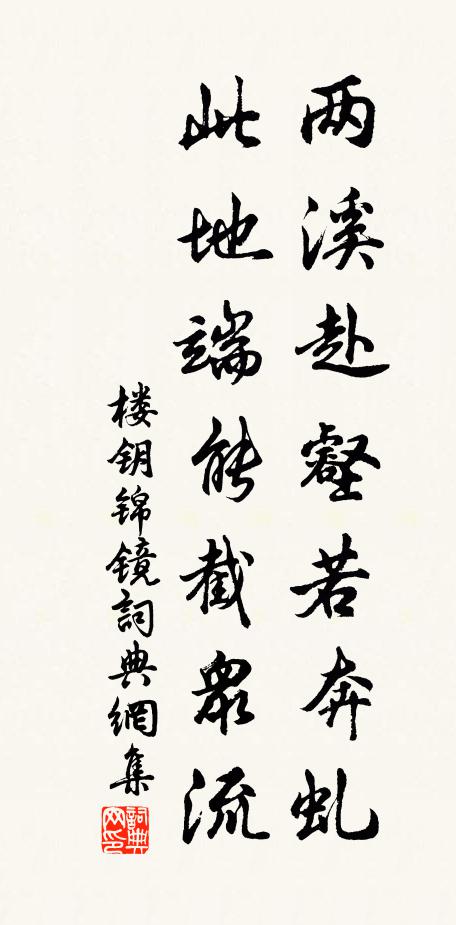 两溪赴壑若奔虬
此地端能截眾流
楼钥锦镜詞典網集
詞典网印